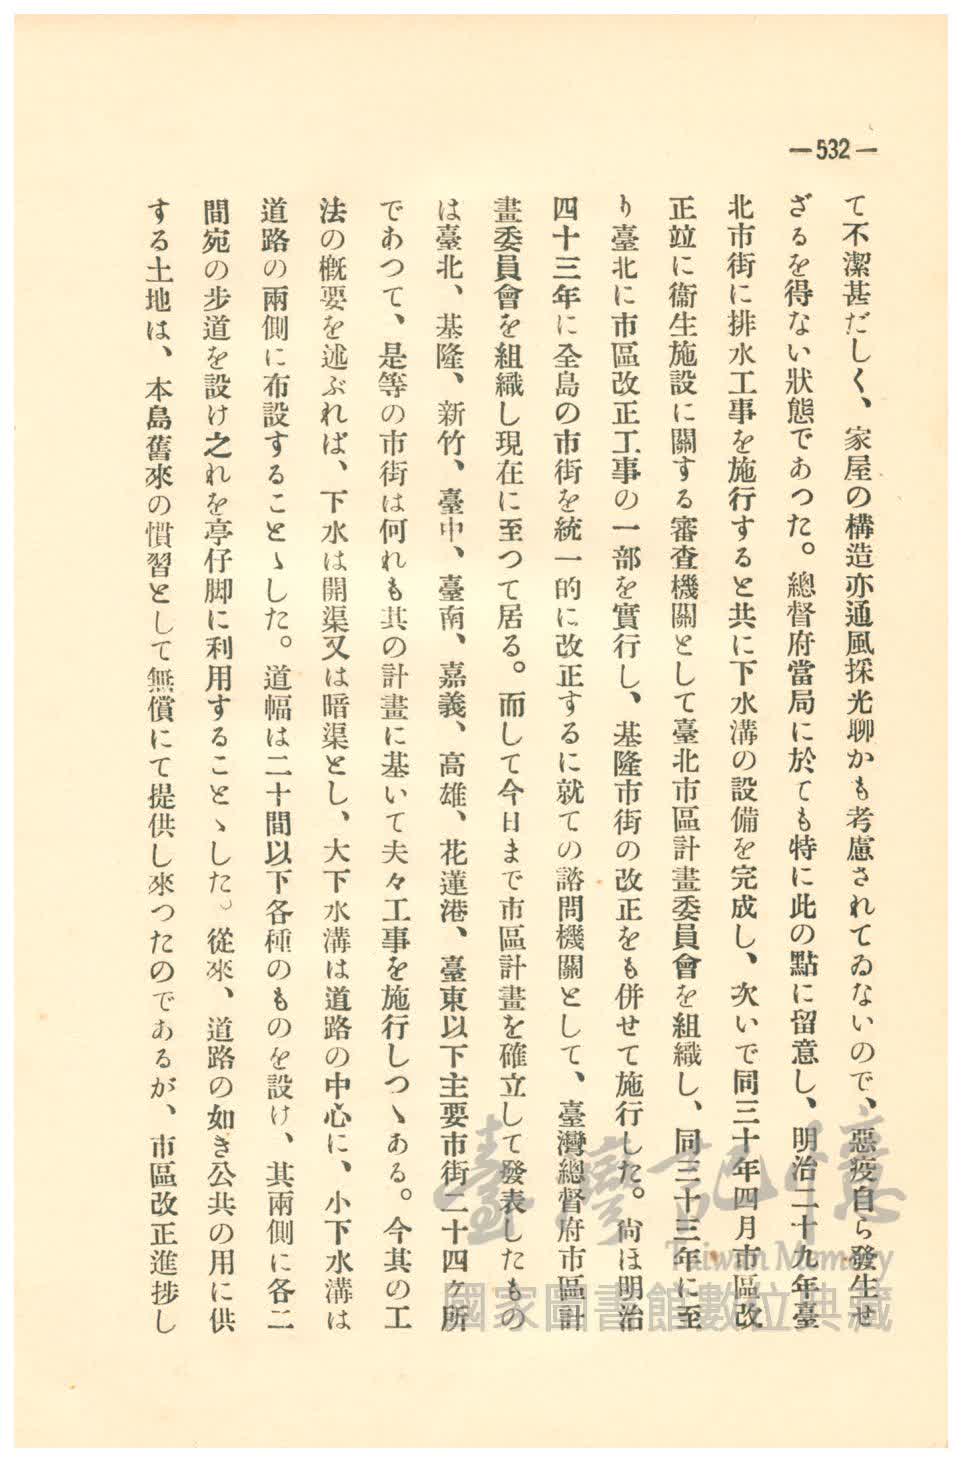 —532—
て不潔甚だしく、家屋の構造亦通風採光聊かも考慮されてゐないので、惡疫自ら發生せ
ざるを得ない狀態であつた。總督府當局に於ても特に此の點に留意し、明治二十九年臺
北市街に排水工事を施行すると共に下水溝の設備を完成し、次いで同三十年四月市區改
正竝に衞生施設に關する審査機關として臺北市區計畫委員會を組織し、同三十三年に至
り臺北に市區改正工事の一部を實行し、基隆市街の改正をも併せて施行した。尙ほ明治
四十三年に全島の市街を統一的に改正するに就ての諮問機關として、臺灣總督府市區計
畫委員會を組織し現在に至つて居る。而して今日まで市區計畫を確立して發表したもの
は臺北、基隆、新竹、臺中、臺南、嘉義、高雄、花蓮港、臺東以下主要市街二十四ケ所
であつて、是等の市街は何れも其の計畫に基いて夫々工事を施行しつゝある。今其の工
法の槪要を述ぶれば、下水は開渠又は暗渠とし、大下水溝は道路の中心に、小下水溝は
道路の兩側に布設することゝした。道幅は二十間以下各種のものを設け、其兩側に各二
間宛の步道を設け之れを亭仔脚に利用することゝした。從來、道路の如き公共の用に供
する土地は、本島舊來の慣習として無償にて提供し來つたのであるが、市區改正進捗し
臺灣記憶
Taiwan Memory
國家圖書館數位典藏